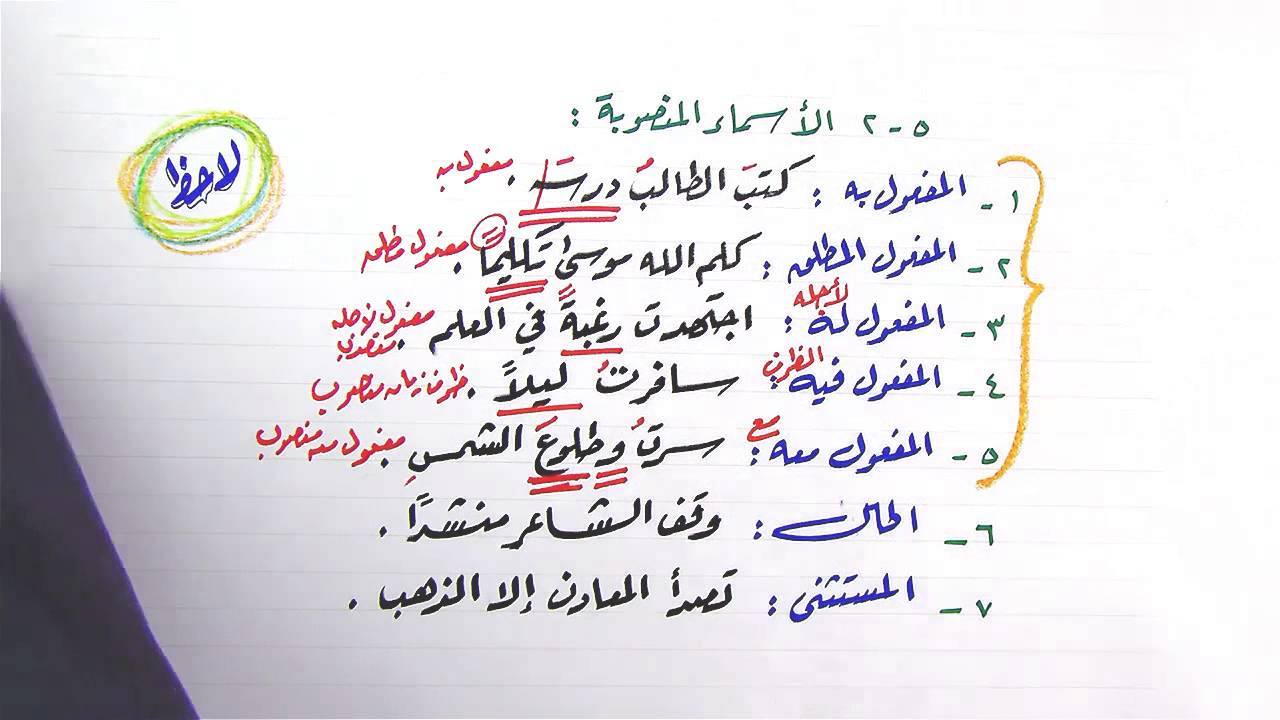 ٥-٢ الأسماء المنصوبة :
لاحظ
١- المفعول به : كتبَ الطالبُ درسَه . مفعول به
٢- المفعول المطلق : كلم الله موسى تَكليماً . مفعول مطلق
٣- المفعول له لأجله : اجتهدت رغبةً في العلم . مفعول لأجله منصوب
٤- المفعول فيه الظرف : سافرتُ ليلاً . ظرف زمان منصوب
٥- المفعول معه مع : سرتُ وطلوعَ الشمسِ . مفعول معه منصوب
٦- الحال : وقف الشاعر منشدًا .
٧- المستثنى : تصدأ المعادن إلا الذهب .